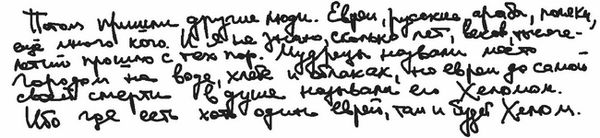 Потом пришли другие люди. Евреи, русские, арабы, поляки,
ещё много кого. И я не знаю, сколько лет, веков, тысяче-
летий прошло с тех пор. Мудрецы назвали место
городом на воде, хлебе и облаках, но евреи до самой
своей смерти в душе называли его Хелмом.
Кто где есть хоть один еврей, там и будет Хелом.